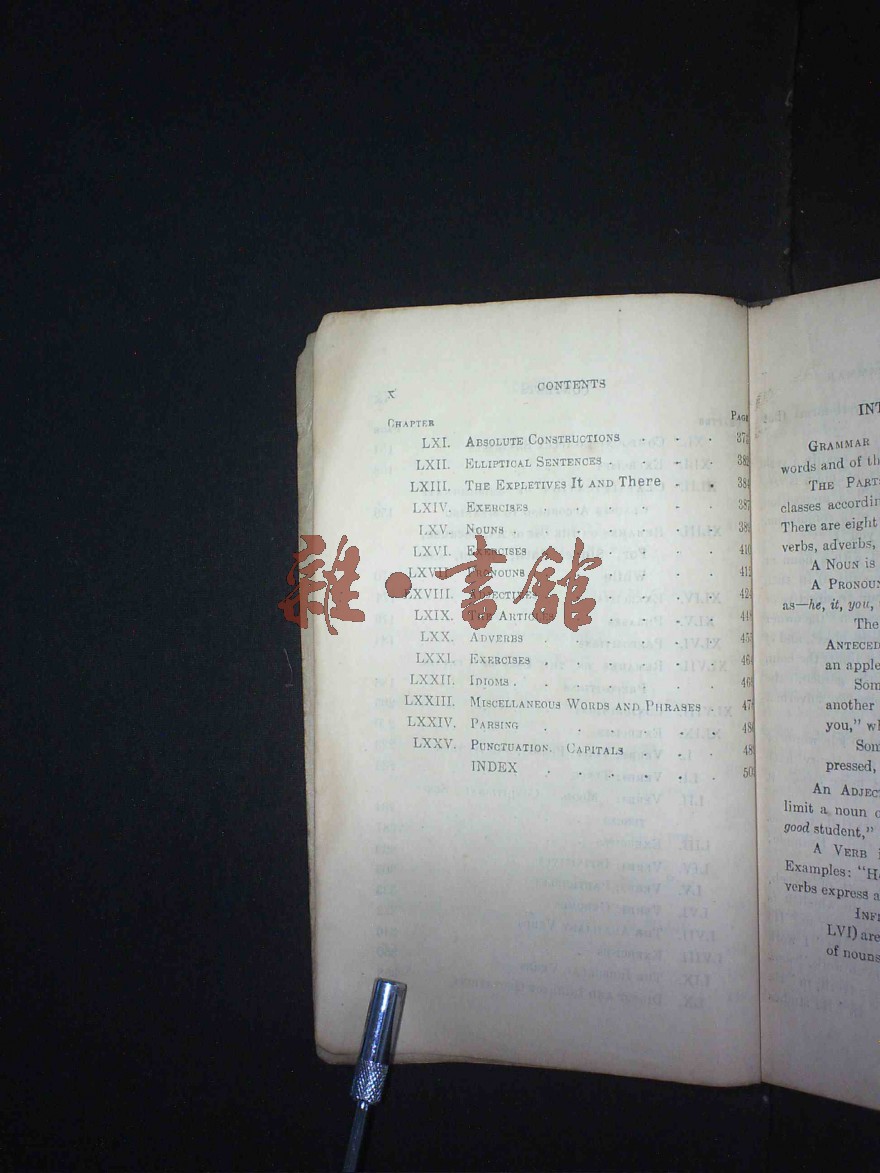 x
CONTENTS
CHAPTER
LXI. ABSOLUTE CONSTRUCTIONS
LXII. ELLIPTICAL SENTENCES
LXIII. THE EXPLETIVES It AND There
LXIV. EXERCISES
LXV. NOUNS
LXVI. EXERCISES 410
LXVII. PRONOUNS 412
LXVIII. ADJECTIVES
LXIX. THE ARTICLES
LXX. ADVERBS
LXXI. EXERCISES
LXXII. IDIOMS
LXXIII. MISCELLANEOUS WORDS AND PHRASES
LXXIV. PARSING
LXXV. PUNCTUATION. CAPITALS
INDEX
雜·書舘
GRAMMAR
words and of
THE
classes
There are eight
verbs, adverbs,
A NOUN is
A PRONOUN
as—he, it, you,
The
an apple
another
you,"
pressed,
An
limit a noun
good student,"
A VERB
Examples:
verbs express
LVI) are
of nouns